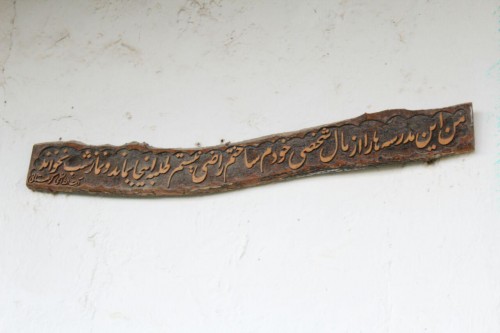 من این مدرسه ها را از مال شخصی خودم ساختم راضی نیستم طلبه اینجا بماند و نماز شب نخواند